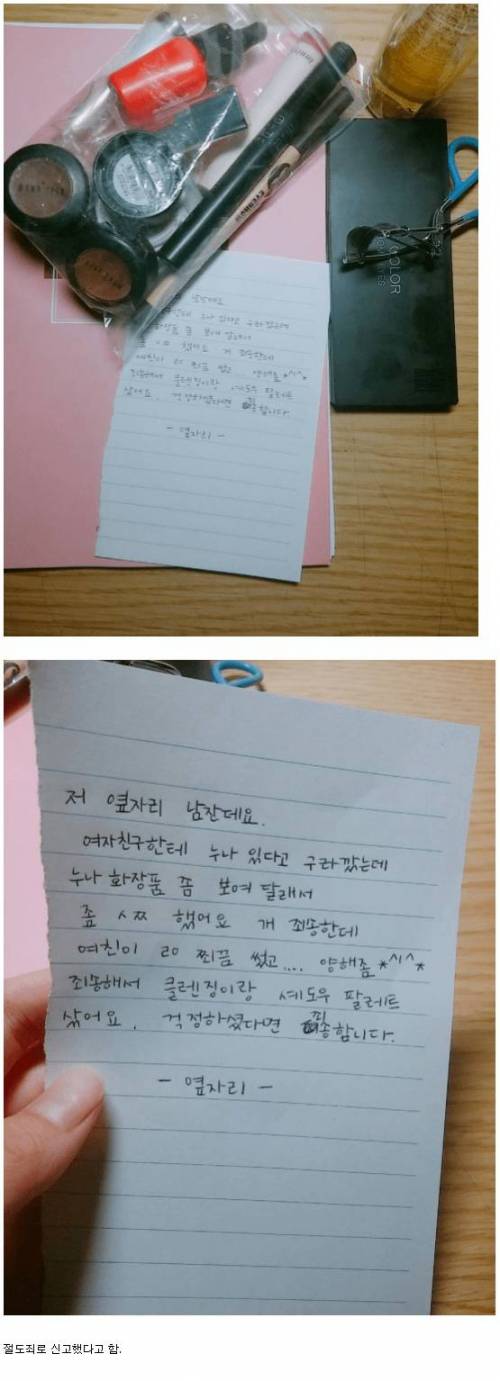 COLOR
누나 있다고 구라깠는데
- 옆자리 -
저 옆자리 남잔데요.
여자친구한테 누나 있다고 구라깠는데
누나 화장품 쫌 보여 달래서
좀 ㅅㅉ 했어요 개 죄송한데
여친이 ㄹㅇ 찌끔 썼고.... 양해좀 *^1^*
죄송해서 클렌징이랑 셰도우 팔레트
샀어요. 걱정하셨다면 죄송합니다.
- 옆자리 -
절도죄로 신고했다고 함.